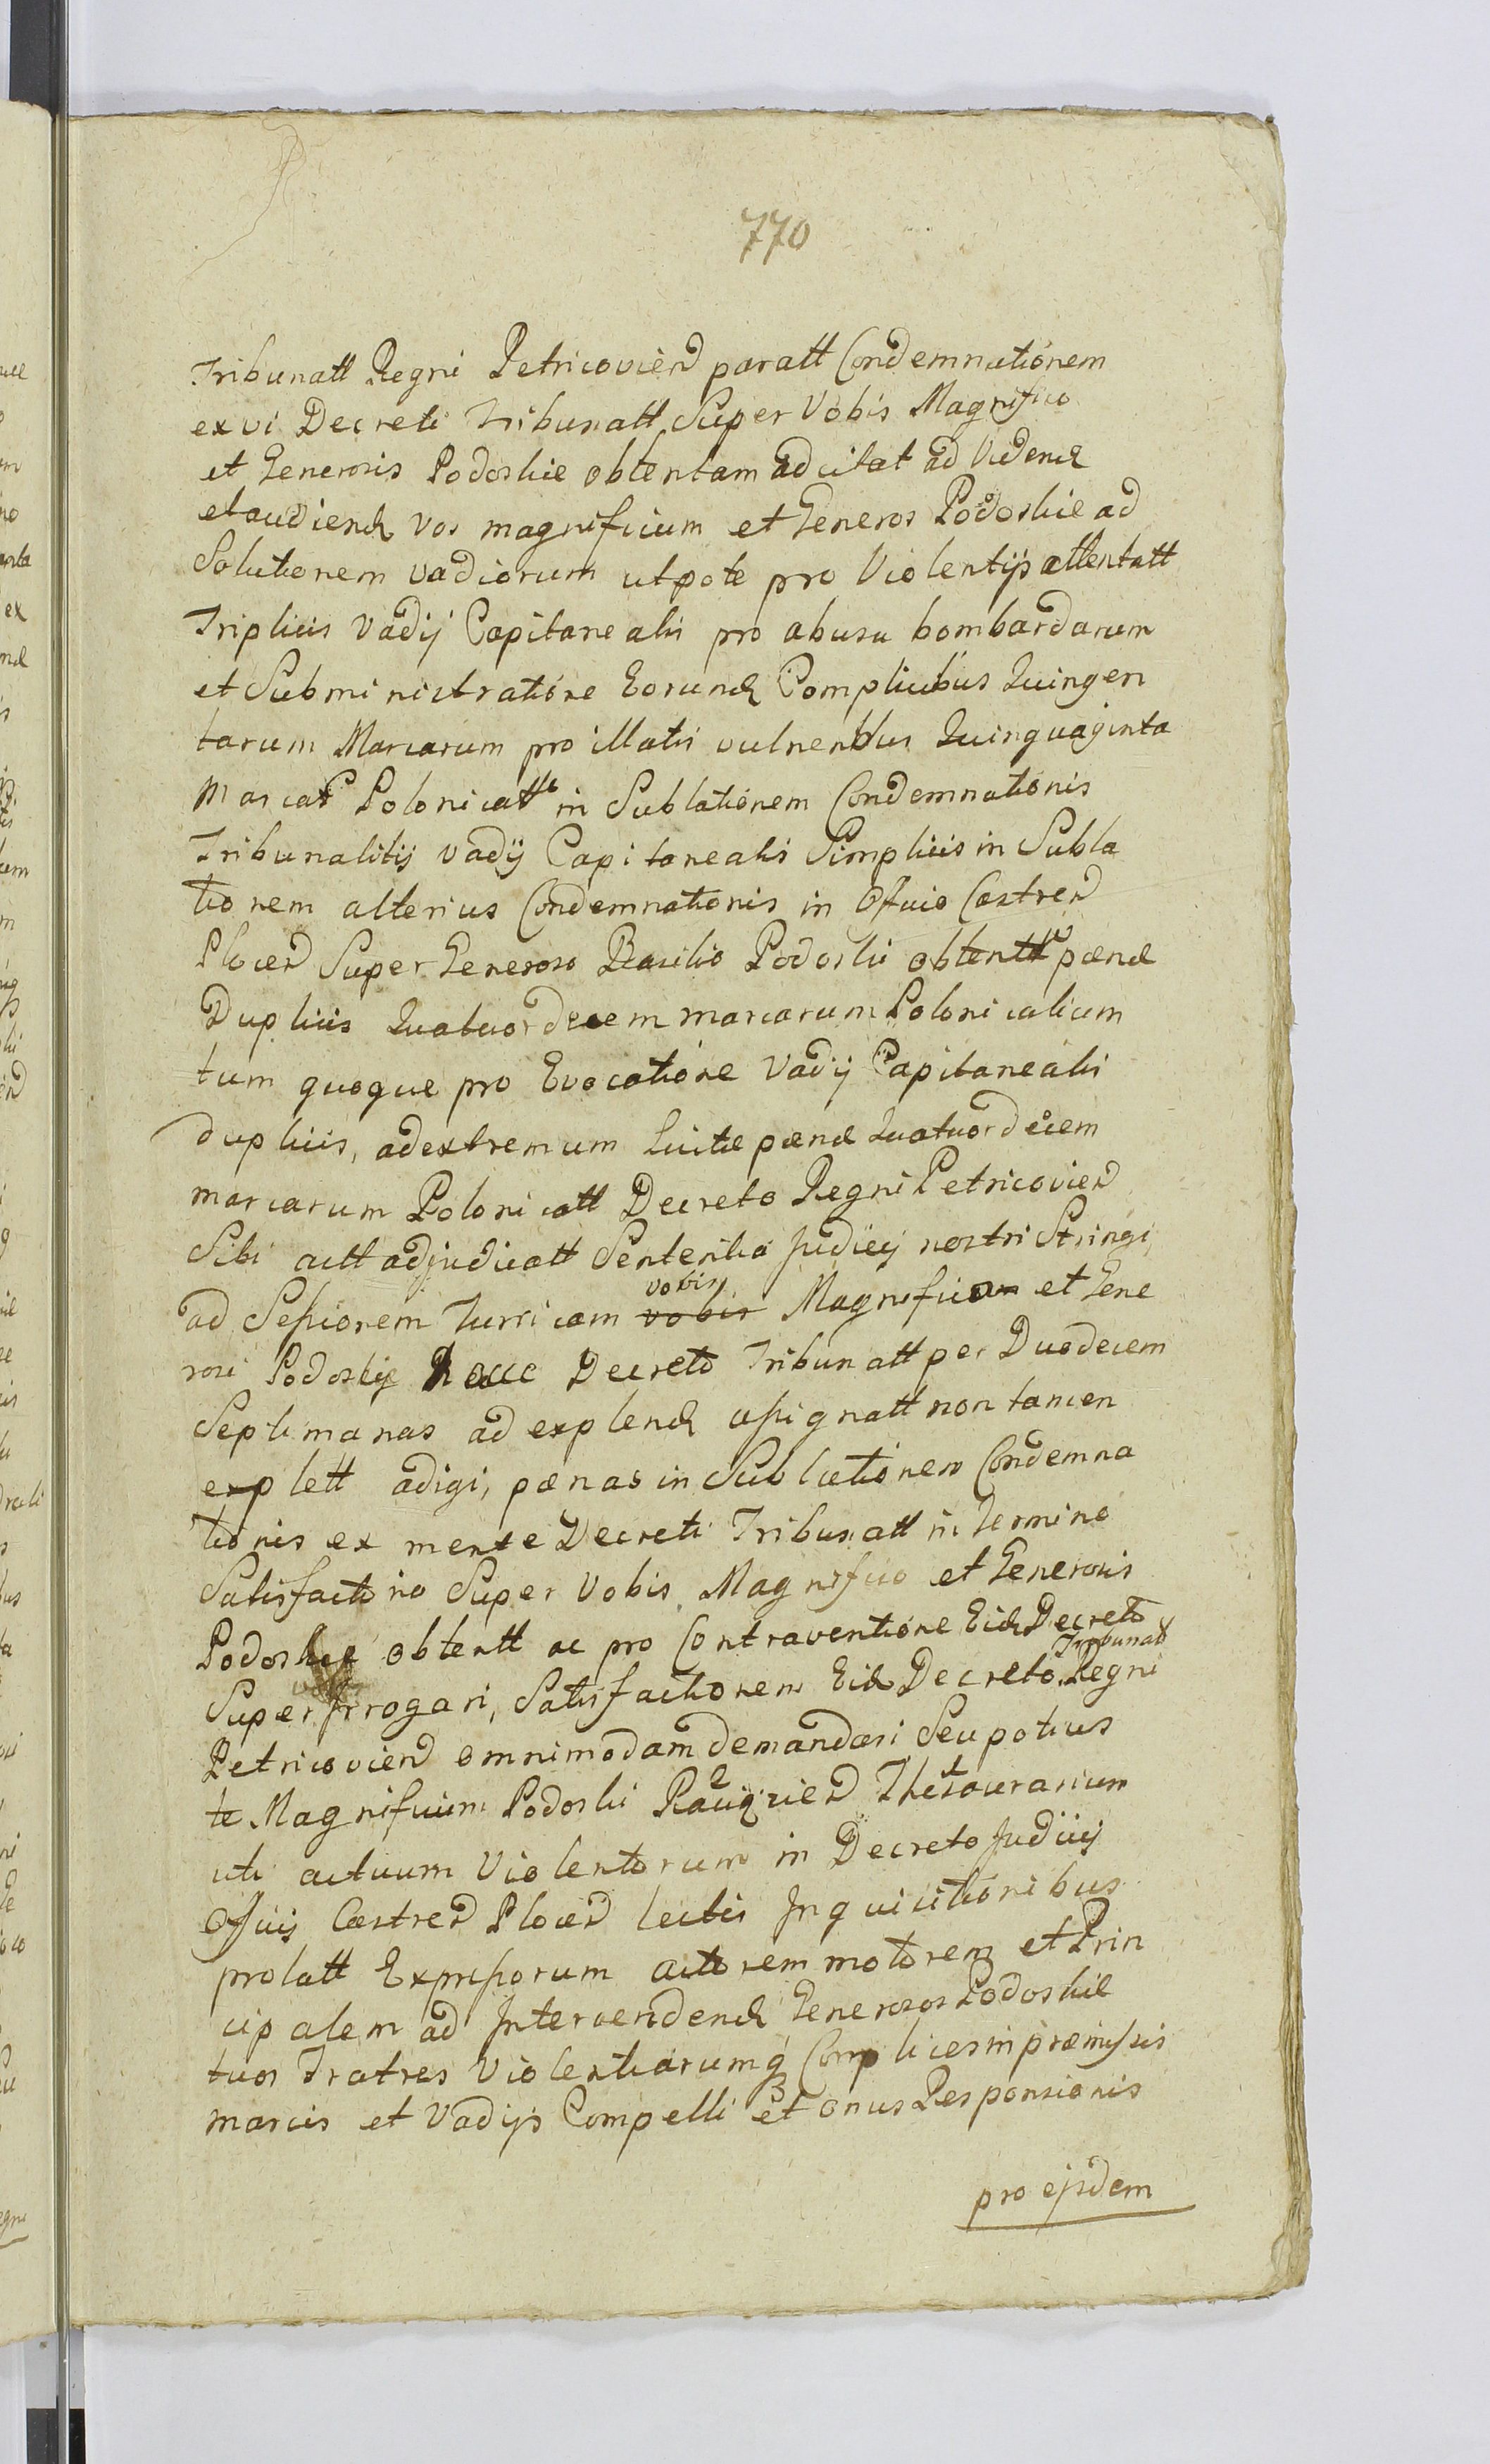 770
Tribunatt Regni Petricovien paratt Condemnationem
ex vi Decreti Tribunatt Super Vobis Magnifico
et Generosis Podoskie obtentam adcitat ad Videnđ
et audienđ vos magnificum et Generos Podoskie ad
Solutionem vadiorum utpote pro Violentijs attentatt
Triplicis Vadij Capitanealis pro abusu bombardarum
et Subministratione Eorunđ Complicibus Quingen
tarum Marcarum pro illatis vulneribus Quinquaginta
Marcar Polonicatt in Sublationem Condemnationis
Tribunalitij vadij Capitanealis Simplicis in Subla
tionem alterius Condemnationis in Officio Castren
Plocen Super Generoso Basilio Podoski obtentt pænæ
Duplicis Quatuordecem marcarum Polonicalium
tum quoque pro Evocatione Vadij Capitanealis
duplicis, ad extremum Luitæ pænæ Quatuordecem
marcarum Polonicatt Decreto Regni Petricovien
Sibi actt adjudicatt Sententia Judicij nostri Stringi,
ad Sessionem Turricam vobis vobis Magnifico et Gene
rosi Podoskie Decreto Tribunatt per Duodecem
Septimanas ad explenđ assignatt non tamen
explett adigi, pænas in Sublationem Condemna
tionis ex mente Decreti Tribunatt in Termino
Satisfactorio Super Vobis Magnifico et Generosis
Podoskie obtentt ac pro Contraventione Eiđ Decreto
Super vobis Irrogari, Satisfactionem Eiđ Decreto Tribunatt Regni
Petricovien omnimodam demandari Seu potius
te Magnificum Podoski Thesaurarium
uti actuum Violentorum in Decreto Judicij
Officij Castren Plocen lectis Inquisitionibus
prolatt Expressorum actorem motorem et Prin
cipalem ad Intervenđenđ Generosos Podoskie
tuos Fratres Violentiarumq Complices in præmissis
marcis et Vadijs Compelli et onus Responsionis
pro ejsdem